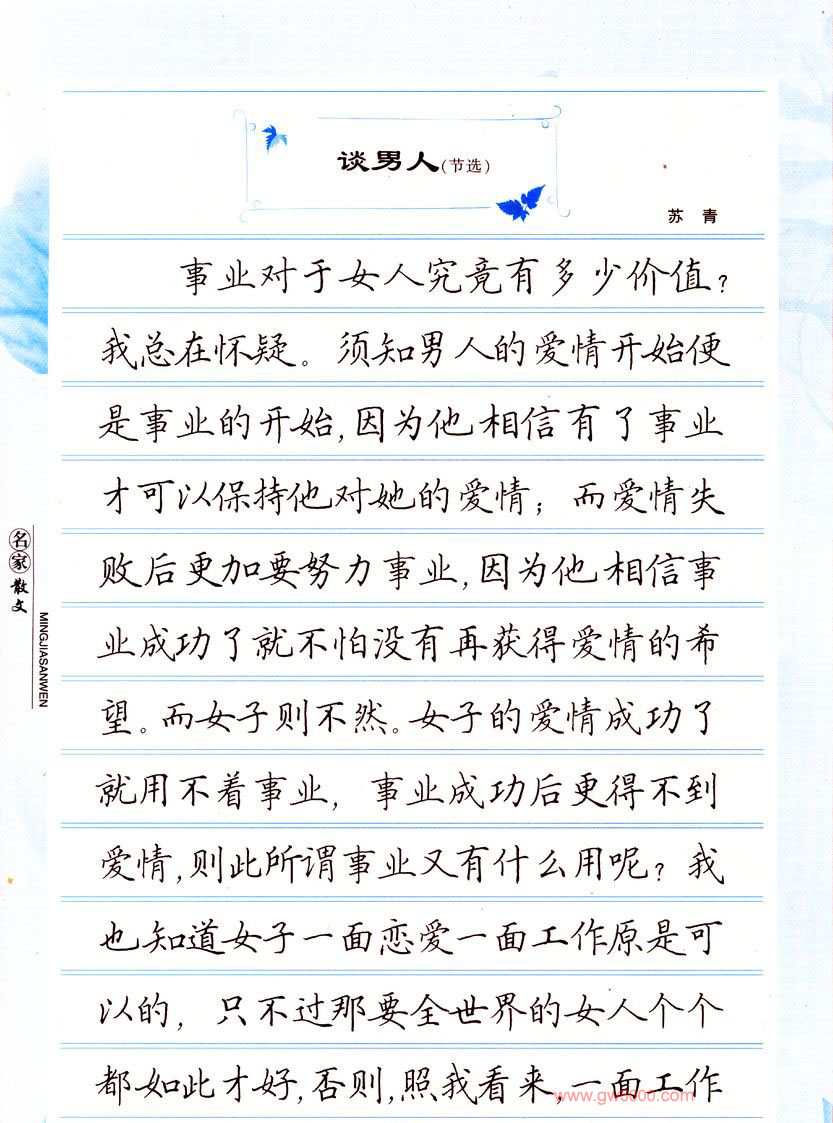 谈男人(节选)
苏 青
事业对于女人究竟有多少价值?
我总在怀疑。须知男人的爱情开始便
是事业的开始,因为他相信有了事业
才可以保持他对她的爱情;而爱情失
败后更加要努力事业,因为他相信事
业成功了就不怕没有再获得爱情的希
望。而女子则不然。女子的爱情成功了
就用不着事业,事业成功后更得不到
爱情,则此所谓事业又有什么用呢?我
也知道女子一面恋爱一面工作原是可
以的,只不过那要全世界的女人个个
都如此才好,否则,照我看来,一面工作
名家散文
MINGJIASANWEN
www.gw5000.com